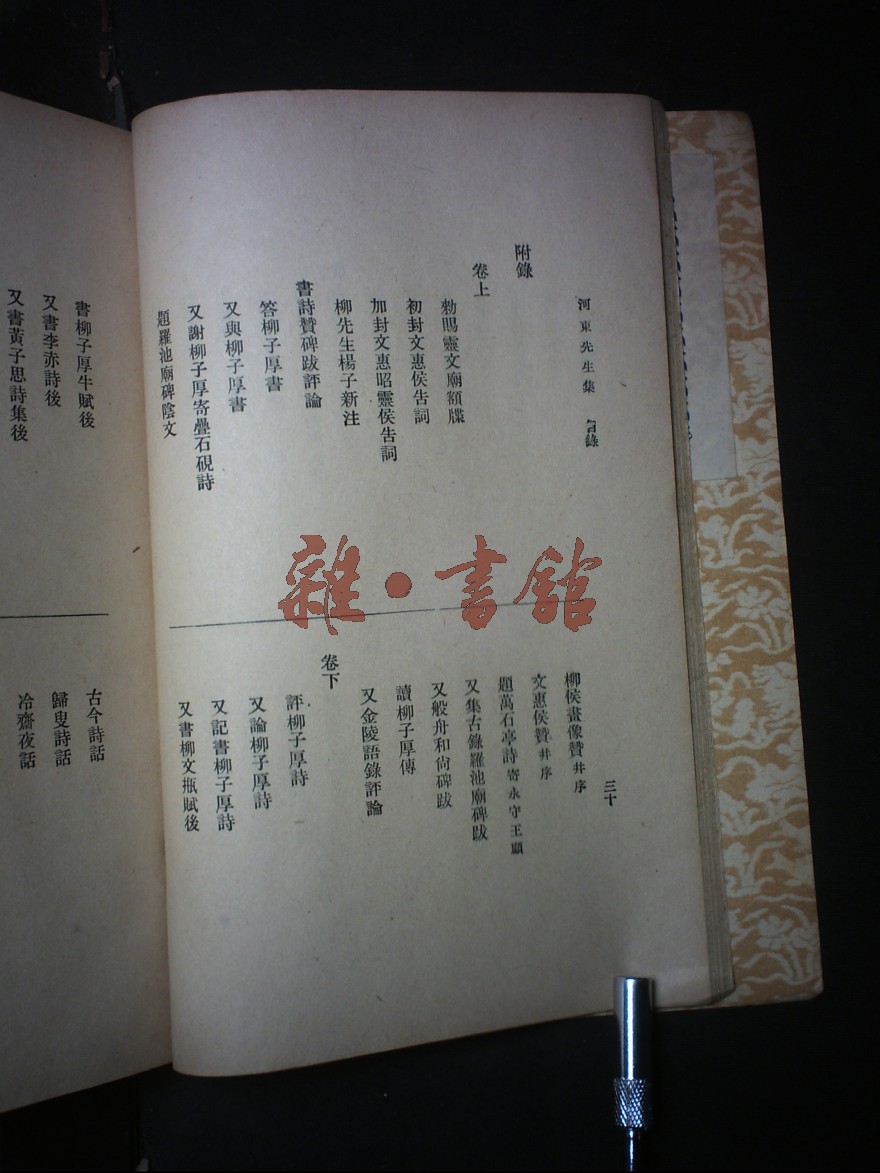 河東先生集 目錄
三十
附錄
卷上
勑賜靈文廟額牒
初封文惠侯告詞
加封文惠昭靈侯告詞
柳先生楊子新注
書詩贊碑跋評論
答柳子厚書
又與柳子厚書
又謝柳子厚寄疊石硯詩
題羅池廟碑陰文
柳侯畫像贊并序
文惠侯贊并序
題萬石亭詩寄永守王顧
又集古錄羅池廟碑跋
又般舟和尙碑跋
讀柳子厚傳
又金陵語錄評論
卷下
評柳子厚詩
又論柳子厚詩
又記書柳子厚詩
又書柳文瓶賦後
書柳子厚牛賦後
又書李赤詩後
又書黃子思詩集後
古今詩話
歸叟詩話
冷齋夜話
雜·書館